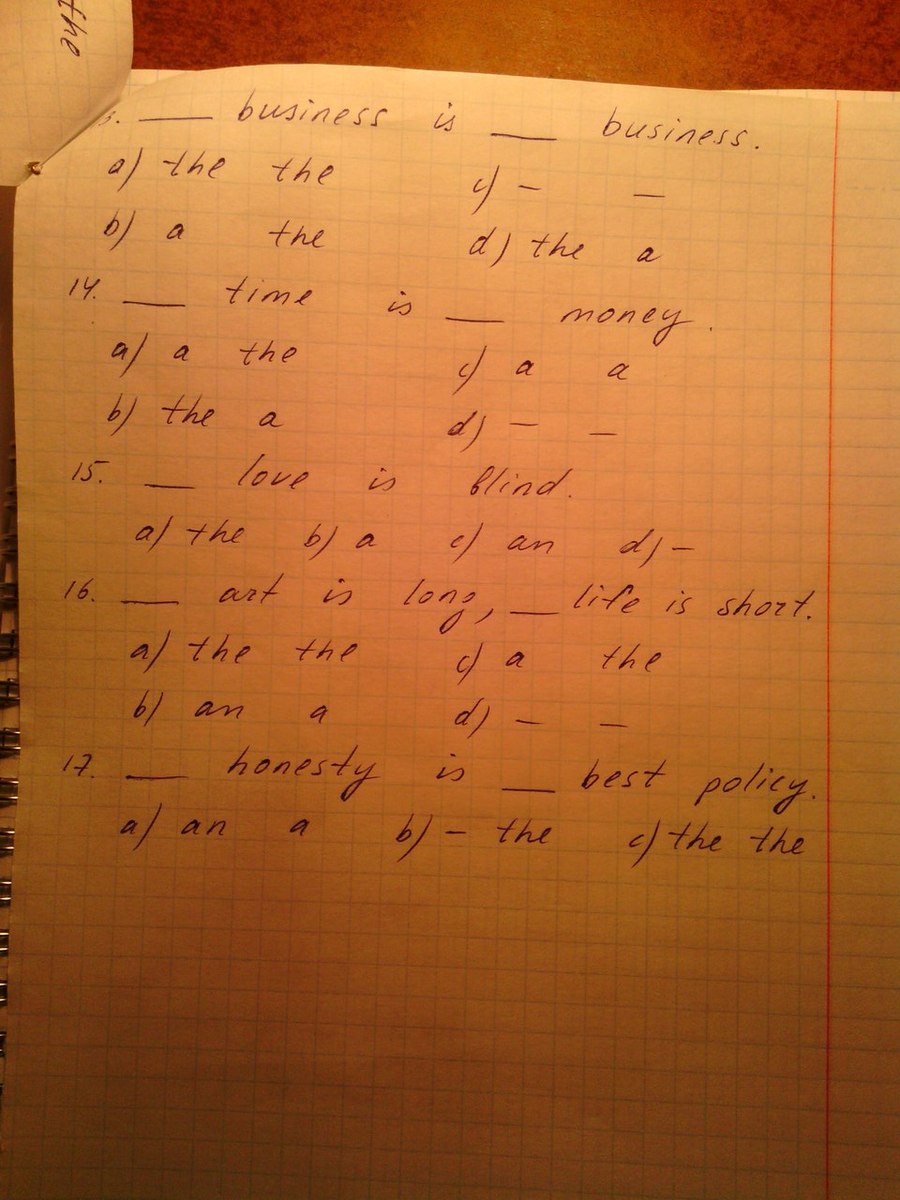 the
3. ___ business is ___ business.
a) the the c) – –
b) a the d) the a
14. ___ time is ___ money.
a) a the c) a a
b) the a d) – –
15. ___ love is blind.
a) the b) a c) an d) –
16. ___ art is long, ___ life is short.
a) the the c) a the
b) an a d) – –
17. ___ honesty is ___ best policy.
a) an a b) – the c) the the